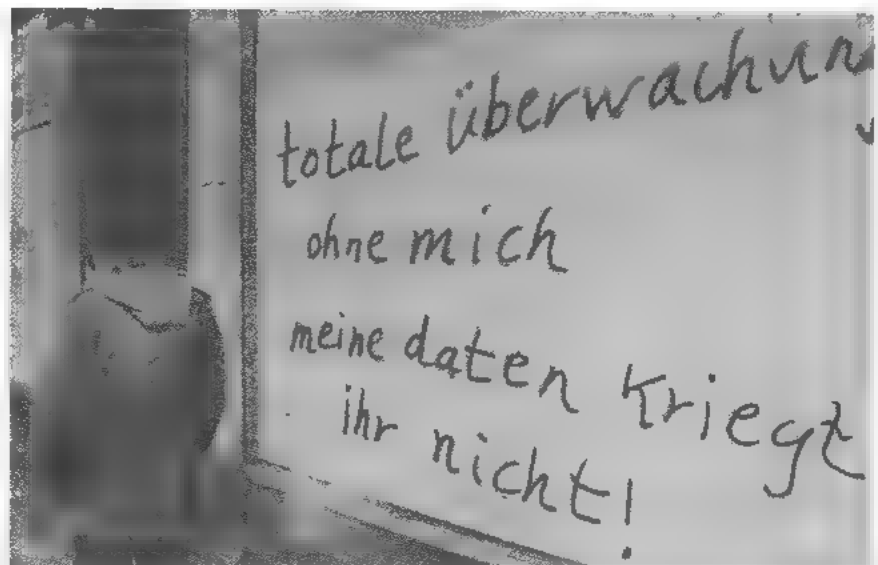 totale überwachung
ohne mich
meine daten kriegt
ihr nicht!